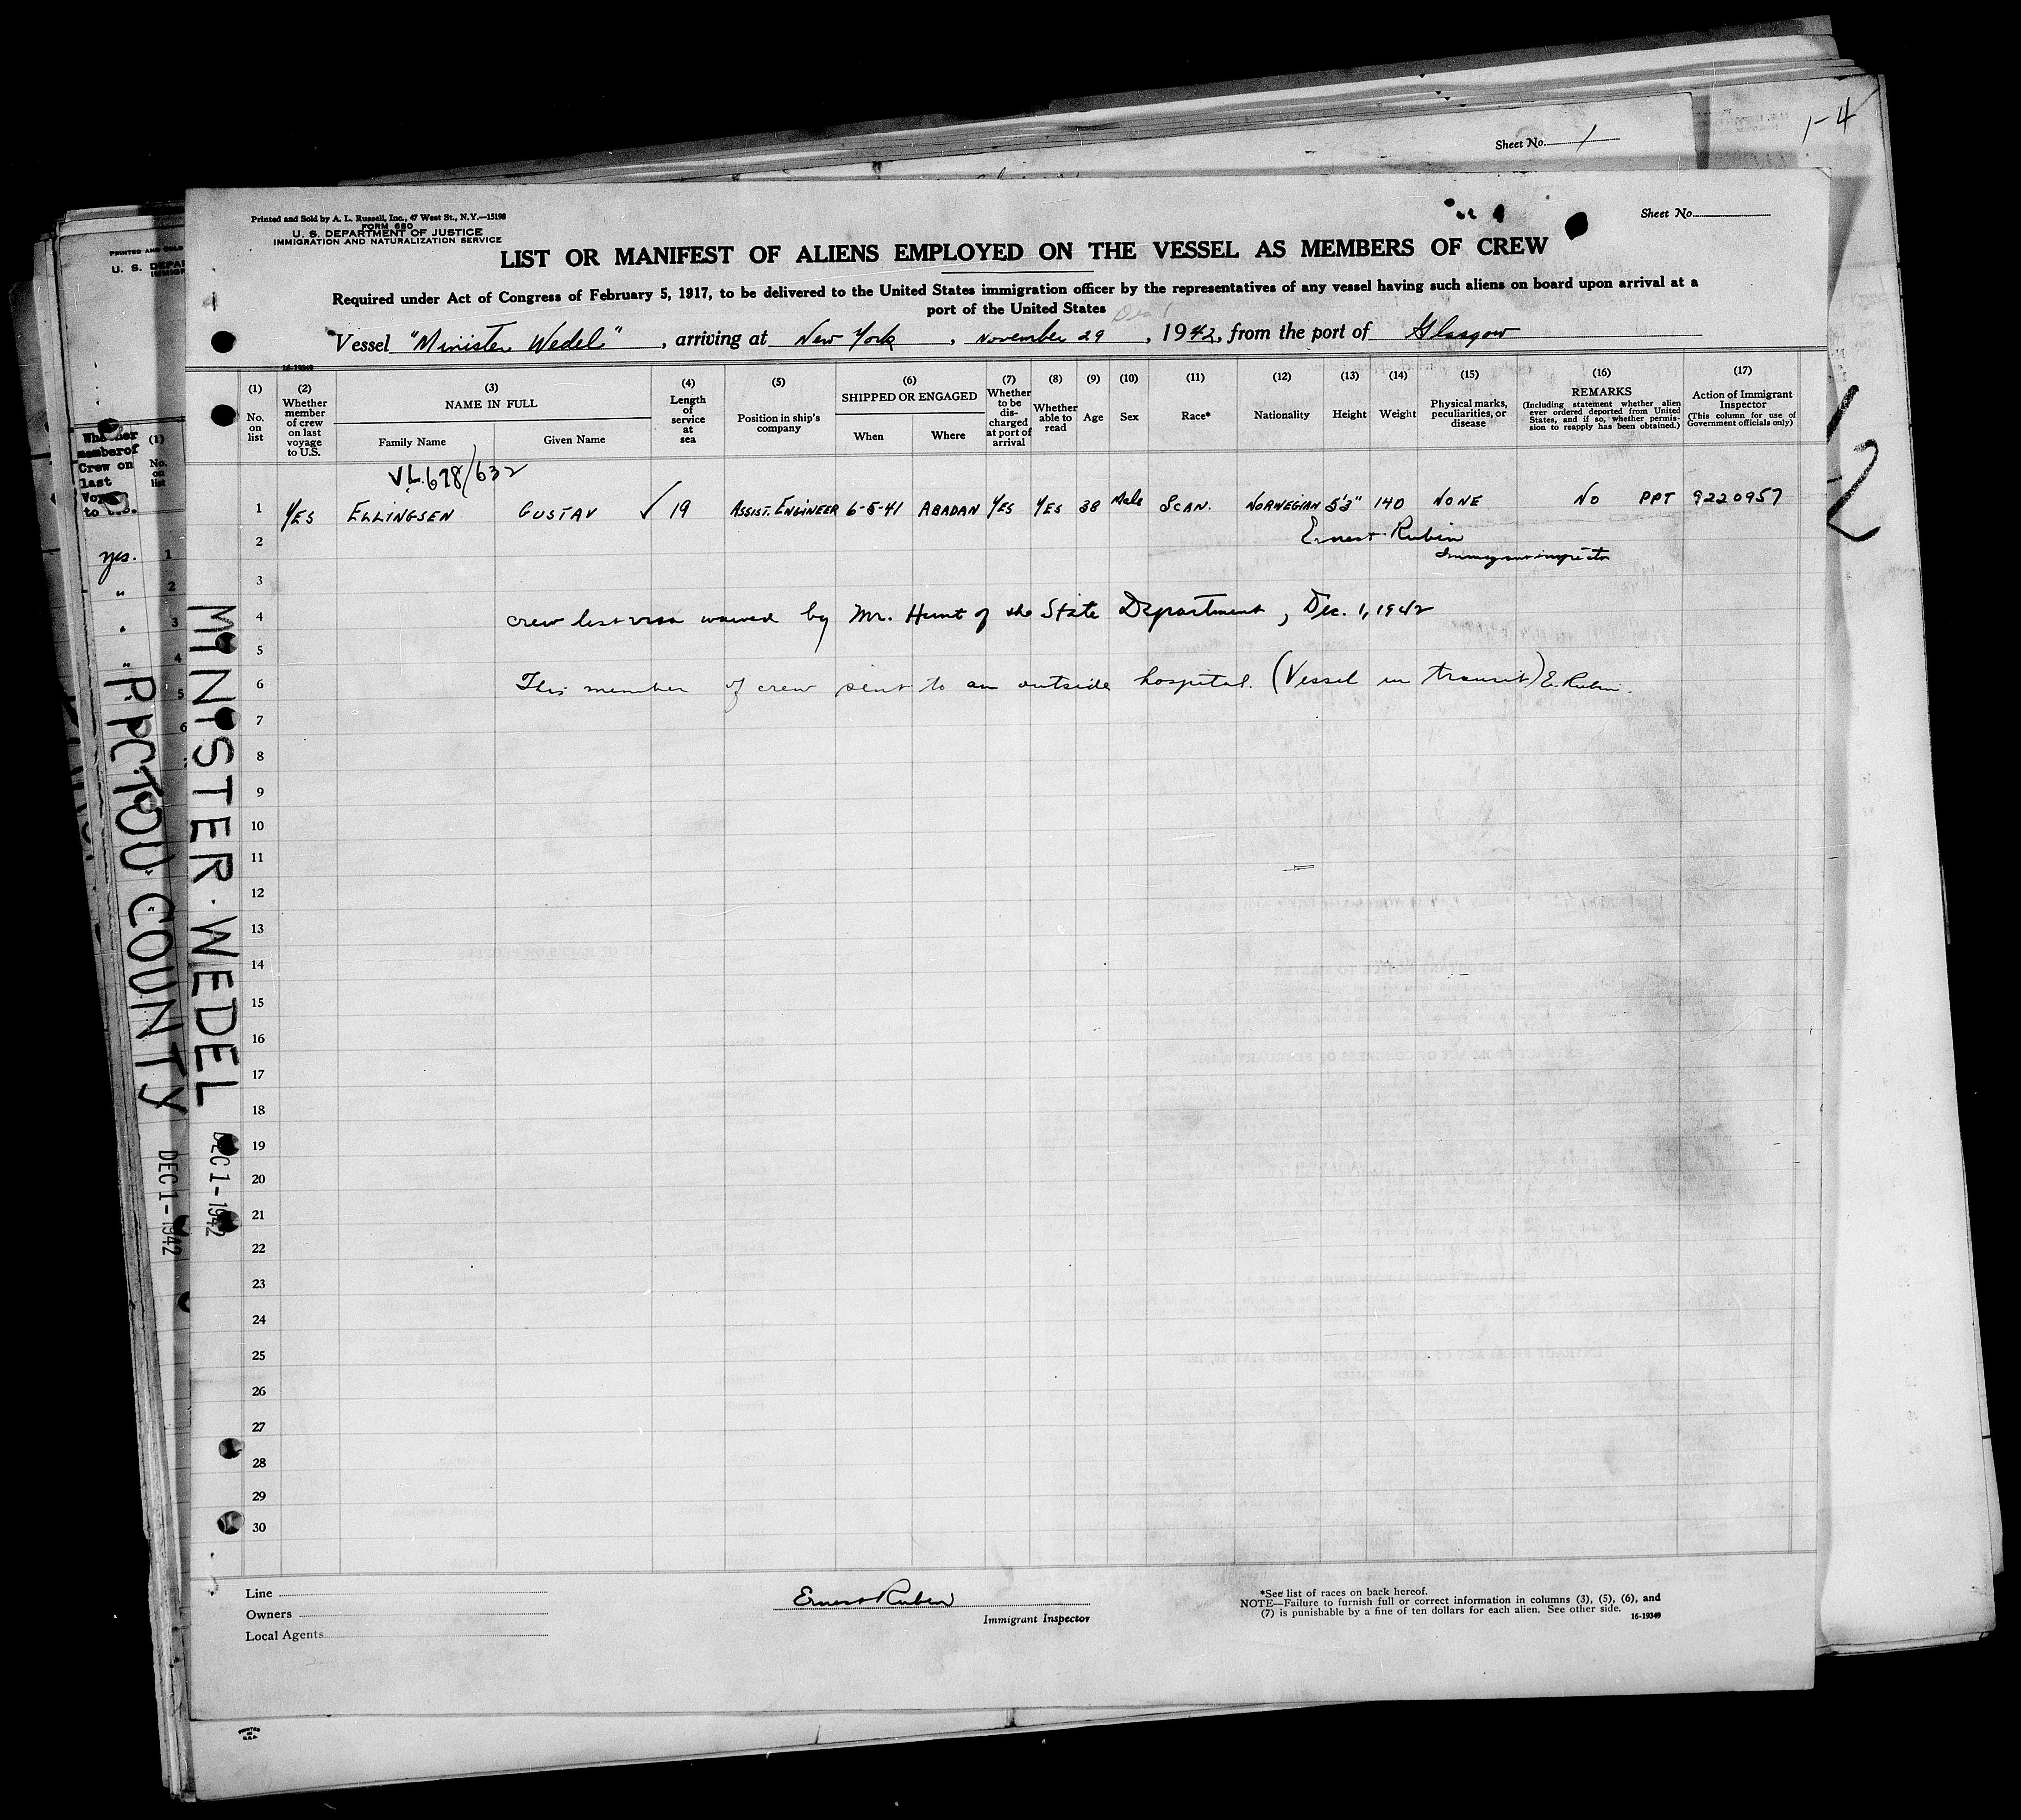 1-4
Sheet No. 1
Printed and Sold by A. L. Russell, Inc., 47 West St., N.Y.—15198
FORM 680
U. S. DEPARTMENT OF JUSTICE
IMMIGRATION AND NATURALIZATION SERVICE
Sheet No.
LIST OR MANIFEST OF ALIENS EMPLOYED ON THE VESSEL AS MEMBERS OF CREW
Required under Act of Congress of February 5, 1917, to be delivered to the United States immigration officer by the representatives of any vessel having such aliens on board upon arrival at a
port of the United States
Dec 1
Vessel "Minister Wedel", arriving at New York, November 29, 1942, from the port of Glasgow
16-19349
(1) No. on list
(2) Whether member of crew on last voyage to U.S.
(3) NAME IN FULL
Family Name
Given Name
(4) Length of service at sea
(5) Position in ship's company
(6) SHIPPED OR ENGAGED
When
Where
(7) Whether to be discharged at port of arrival
(8) Whether able to read
(9) Age
(10) Sex
(11) Race*
(12) Nationality
(13) Height
(14) Weight
(15) Physical marks, peculiarities, or disease
(16) REMARKS (Including statement whether alien ever ordered deported from United States, and if so, whether permission to reapply has been obtained.)
(17) Action of Immigrant Inspector (This column for use of Government officials only)
VL.678/632
1 YES ELLINGSEN GUSTAV ✓ 19 ASSIST. ENGINEER 6-5-41 ABADAN YES YES 38 Male SCAN. NORWEGIAN 5'3" 140 NONE NO PPT 9220957
2 Ernest Rubin
Immigrant inspector
3
4 crew list visa waived by Mr. Hunt of the State Department, Dec. 1, 1942
5
6 This member of crew sent to an outside hospital. (Vessel in transit) E. Rubin.
7
8
9
10
11
12
13
14
15
16
17
18
19
20
21
22
23
24
25
26
27
28
29
30
MINISTER WEDEL
DEC 1 - 1942
PICTOU COUNTY
DEC 1 - 1942
Line
Owners
Local Agents
Ernest Rubin
Immigrant Inspector
*See list of races on back hereof.
NOTE—Failure to furnish full or correct information in columns (3), (5), (6), and
(7) is punishable by a fine of ten dollars for each alien. See other side.
16-19349
PRINTED IN U.S.A.